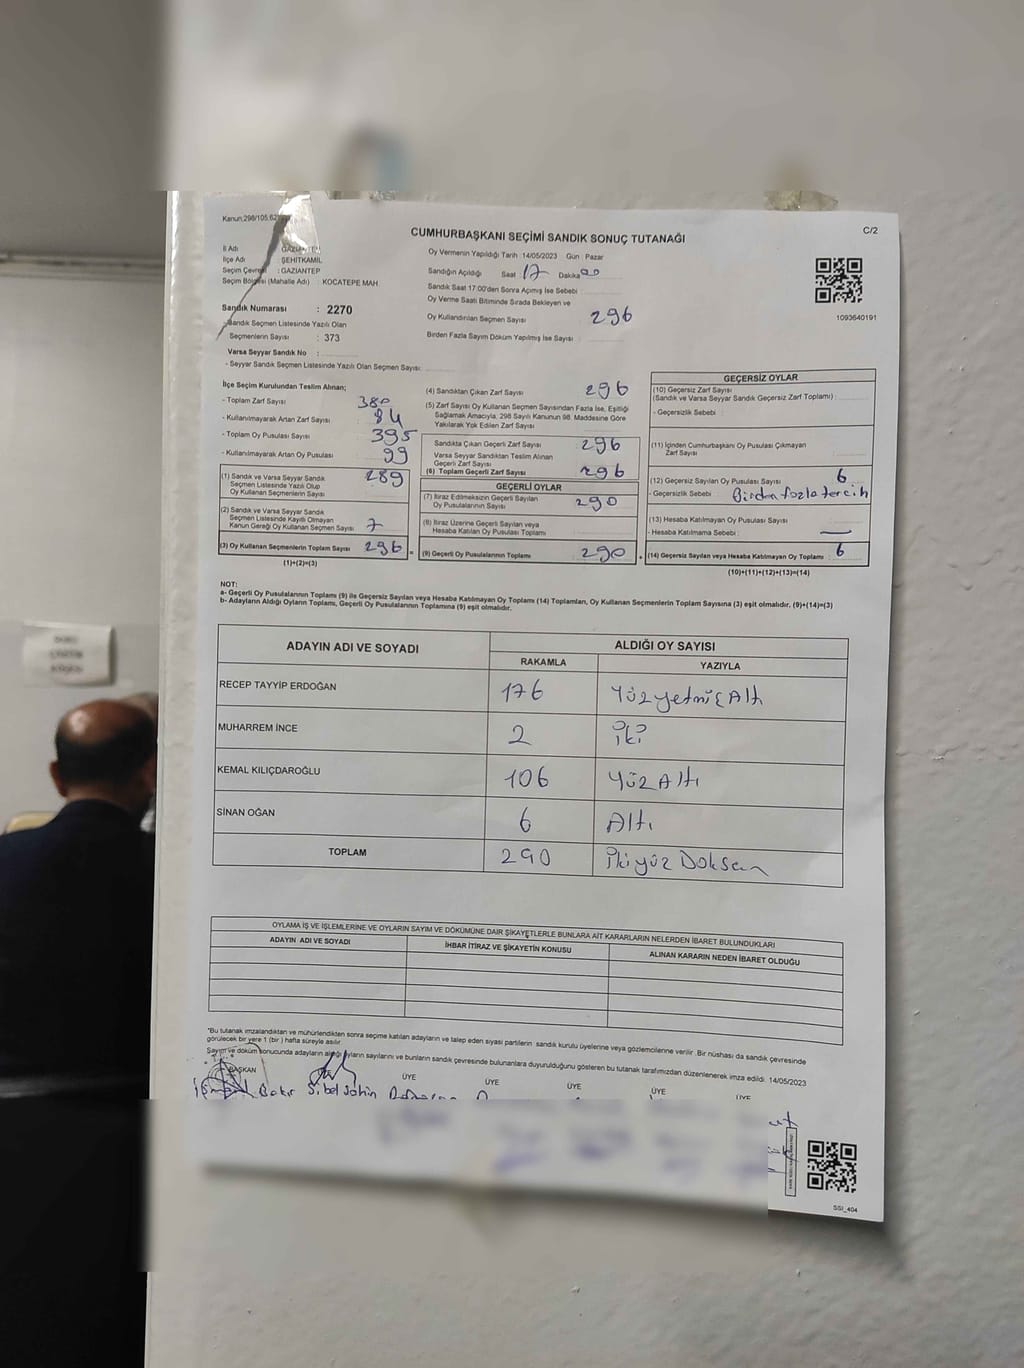 Kanun,298/105,62
C/2
CUMHURBAŞKANI SEÇİMİ SANDIK SONUÇ TUTANAĞI
İl Adı : GAZİANTEP
İlçe Adı : ŞEHİTKAMİL
Seçim Çevresi : GAZİANTEP
Seçim Bölgesi (Mahalle Adı) : KOCATEPE MAH.
Sandık Numarası : 2270
- Sandık Seçmen Listesinde Yazılı Olan
Seçmenlerin Sayısı : 373
Varsa Seyyar Sandık No :
- Seyyar Sandık Seçmen Listesinde Yazılı Olan Seçmen Sayısı:
Oy Vermenin Yapıldığı Tarih 14/05/2023 Gün Pazar
Sandığın Açıldığı Saat 17 Dakika 00
Sandık Saat 17:00'den Sonra Açımış İse Sebebi :
Oy Verme Saati Bitiminde Sırada Bekleyen ve
Oy Kullandırılan Seçmen Sayısı 296
Birden Fazla Sayım Döküm Yapılmış İse Sayısı :
1093640191
İlçe Seçim Kurulundan Teslim Alınan;
- Toplam Zarf Sayısı 380
- Kullanılmayarak Artan Zarf Sayısı : 84
- Toplam Oy Pusulası Sayısı 395
- Kullanılmayarak Artan Oy Pusulası 99
(1) Sandık ve Varsa Seyyar Sandık
Seçmen Listesinde Yazılı Olup
Oy Kullanan Seçmenlerin Sayısı 289
(2) Sandık ve Varsa Seyyar Sandık
Seçmen Listesinde Kayıtlı Olmayan
Kanun Gereği Oy Kullanan Seçmen Sayısı 7
(3) Oy Kullanan Seçmenlerin Toplam Sayısı 296 =
(1)+(2)=(3)
(4) Sandıktan Çıkan Zarf Sayısı 296
(5) Zarf Sayısı Oy Kullanan Seçmen Sayısından Fazla İse, Eşitliği
Sağlamak Amacıyla, 298 Sayılı Kanunun 98. Maddesine Göre
Yakılarak Yok Edilen Zarf Sayısı
Sandıkta Çıkan Geçerli Zarf Sayısı 296
Varsa Seyyar Sandıktan Teslim Alınan
Geçerli Zarf Sayısı
(6) Toplam Geçerli Zarf Sayısı 296
GEÇERLİ OYLAR
(7) İtiraz Edilmeksizin Geçerli Sayılan
Oy Pusulalarının Sayısı : 290
(8) İtiraz Üzerine Geçerli Sayılan veya
Hesaba Katılan Oy Pusulası Toplamı
(9) Geçerli Oy Pusulalarının Toplamı 290 +
GEÇERSİZ OYLAR
(10) Geçersiz Zarf Sayısı
(Sandık ve Varsa Seyyar Sandık Geçersiz Zarf Toplamı) :
- Geçersizlik Sebebi :
(11) İçinden Cumhurbaşkanı Oy Pusulası Çıkmayan
Zarf Sayısı
(12) Geçersiz Sayılan Oy Pusulası Sayısı 6
- Geçersizlik Sebebi : Birden fazla tercih
(13) Hesaba Katılmayan Oy Pusulası Sayısı
- Hesaba Katılmama Sebebi : —
(14) Geçersiz Sayılan veya Hesaba Katılmayan Oy Toplamı : 6
(10)+(11)+(12)+(13)=(14)
NOT:
a- Geçerli Oy Pusulalarının Toplamı (9) ile Geçersiz Sayılan veya Hesaba Katılmayan Oy Toplamı (14) Toplamları, Oy Kullanan Seçmenlerin Toplam Sayısına (3) eşit olmalıdır. (9)+(14)=(3)
b- Adayların Aldığı Oyların Toplamı, Geçerli Oy Pusulalarının Toplamına (9) eşit olmalıdır.
ADAYIN ADI VE SOYADI ALDIĞI OY SAYISI
RAKAMLA YAZIYLA
RECEP TAYYİP ERDOĞAN 176 YüzyetmişAltı
MUHARREM İNCE 2 İki
KEMAL KILIÇDAROĞLU 106 YüzAltı
SİNAN OĞAN 6 Altı
TOPLAM 290 İkiyüz Doksan
OYLAMA İŞ VE İŞLEMLERİNE VE OYLARIN SAYIM VE DÖKÜMÜNE DAİR ŞİKAYETLERLE BUNLARA AİT KARARLARIN NELERDEN İBARET BULUNDUKLARI
ADAYIN ADI VE SOYADI İHBAR İTİRAZ VE ŞİKAYETİN KONUSU ALINAN KARARIN NEDEN İBARET OLDUĞU
*Bu tutanak imzalandıktan ve mühürlendikten sonra seçime katılan adayların ve talep eden siyasi partilerin sandık kurulu üyelerine veya gözlemcilerine verilir. Bir nüshası da sandık çevresinde
görülecek bir yere 1 (bir ) hafta süreyle asılır.
Sayım ve döküm sonucunda adayların aldığı oyların sayılarını ve bunların sandık çevresinde bulunanlara duyurulduğunu gösteren bu tutanak tarafımızdan düzenlenerek imza edildi. 14/05/2023
BAŞKAN ÜYE ÜYE ÜYE ÜYE ÜYE
Bakır Sibel Şahin
SSI_404